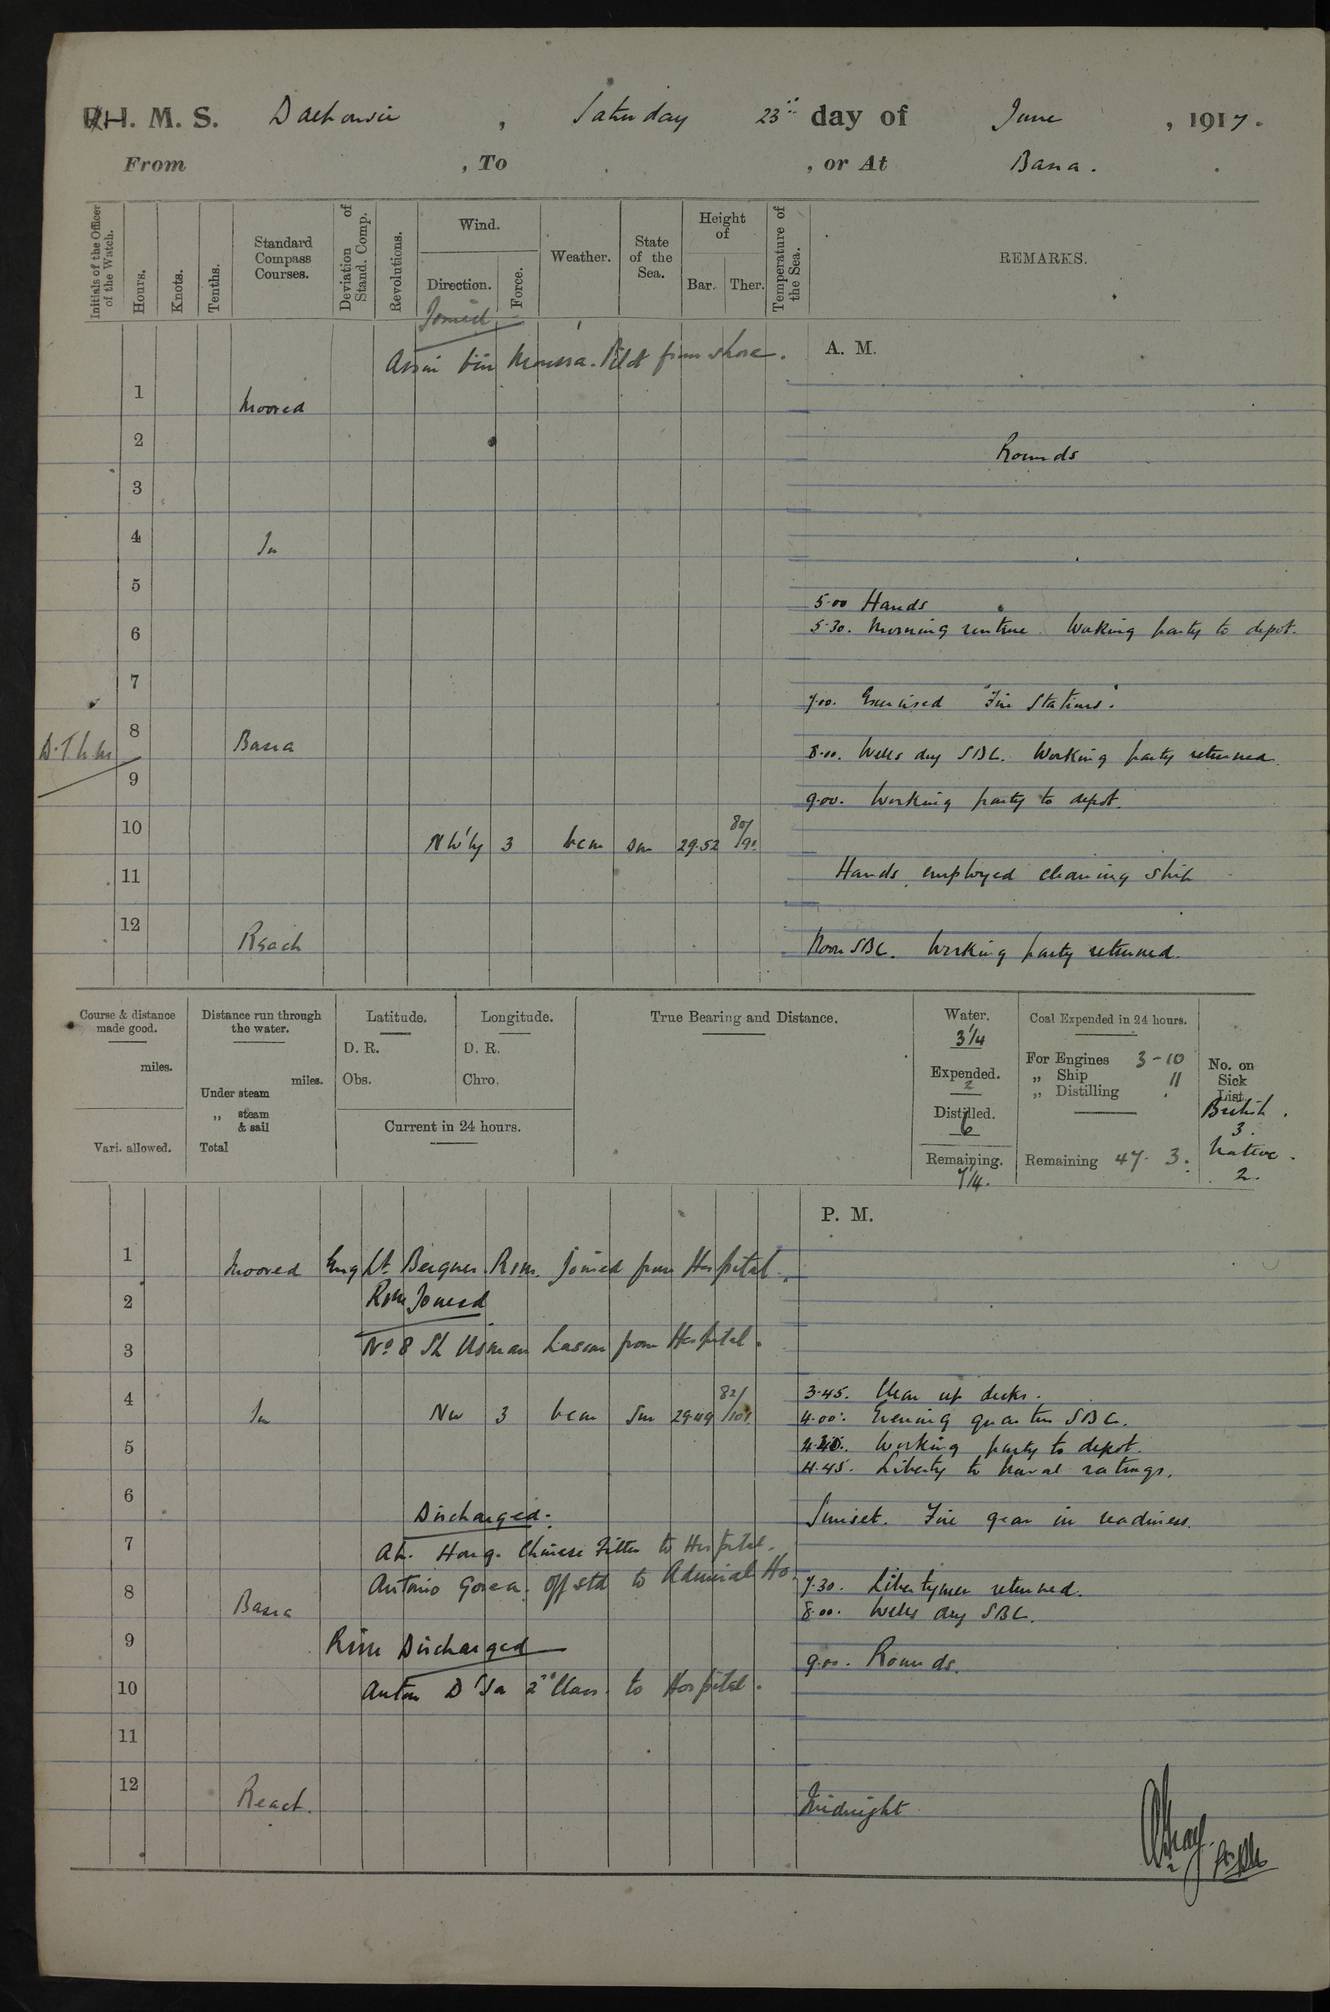 H. M. S. Dalhousie, Saturday 23rd day of June, 1917.
From , To , or At Basra.
Initials of the Officer of the Watch.
Hours.
Knots.
Tenths.
Standard Compass Courses.
Deviation of Stand. Comp.
Revolutions.
Wind.
Direction.
Force.
Weather.
State of the Sea.
Height of
Bar.
Ther.
Temperature of the Sea.
REMARKS.
Joined
bin Moussa. Pilot from shore.
A. M.
1
Moored
2
Rounds
3
4
In
5
5.00 Hands
5.30. Morning routine. Working party to depot.
6
7
7.00. Exercised "Fire Stations".
8
Basra
8.00. Wells dry SBC. Working party returned.
9
9.00. Working party to depot.
10
NW'ly 3 bcm sm 29.52 80/90
11
Hands employed cleaning ship
12
Reach
Noon SBC. Working party returned.
Course & distance made good.
miles.
Vari. allowed.
Distance run through the water.
miles.
Under steam
„ steam & sail
Total
Latitude.
D. R.
Obs.
Longitude.
D. R.
Chro.
Current in 24 hours.
True Bearing and Distance.
Water.
3 1/4
Expended.
2
Distilled.
6
Remaining.
7 1/4.
Coal Expended in 24 hours.
For Engines 3-10
„ Ship 11
„ Distilling .
Remaining 47. 3.
No. on Sick List.
British.
3.
Native.
2.
P. M.
1
Moored Eng Lt. Bergner. RIM. joined from Hospital.
2
RIM Joined
3
No 8 Sh Usman Lascar from Hospital.
3.45. Clear up decks.
4
In NW 3 bcm Sm 29.49 82/101
4.00. Evening quarters SBC.
5
4.30. Working party to depot.
4.45. Liberty to Naval ratings.
6
Discharged.
Sunset. Fire gear in readiness.
7
Ah. Hong. Chinese Fitter to Hospital.
8
Antonio Gorea. Off std to Admiral Ho.
7.30. Libertymen returned.
Basra
8.00. Wells dry SBC.
9
RIM Discharged
9.00. Rounds.
10
Anton D'Sa 2nd Class. to Hospital.
11
12
Reach.
Midnight